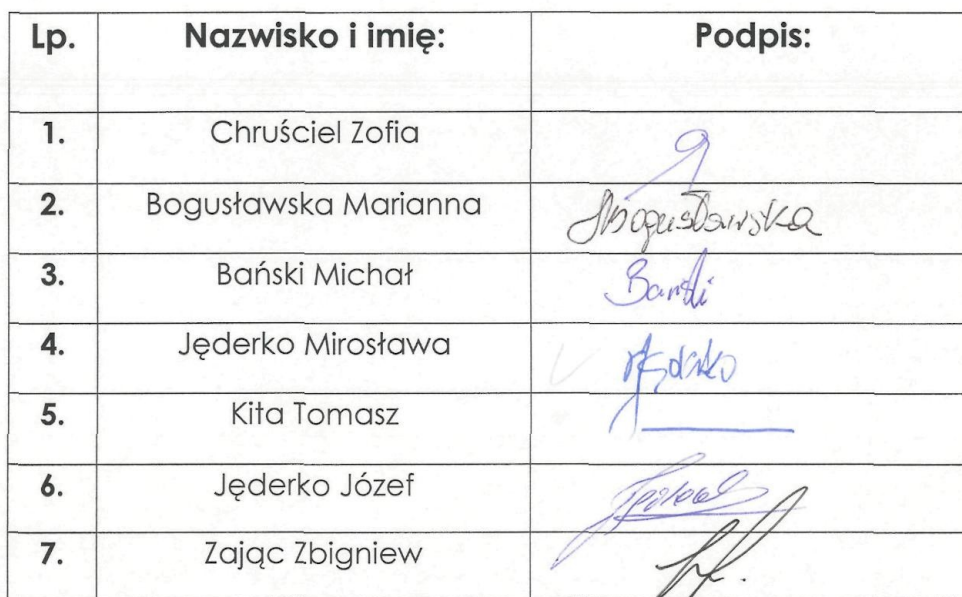 Lp. Nazwisko i imię: Podpis:
1. Chruściel Zofia
2. Bogusławska Marianna Bogusławska
3. Bański Michał Bański
4. Jęderko Mirosława
5. Kita Tomasz
6. Jęderko Józef
7. Zając Zbigniew